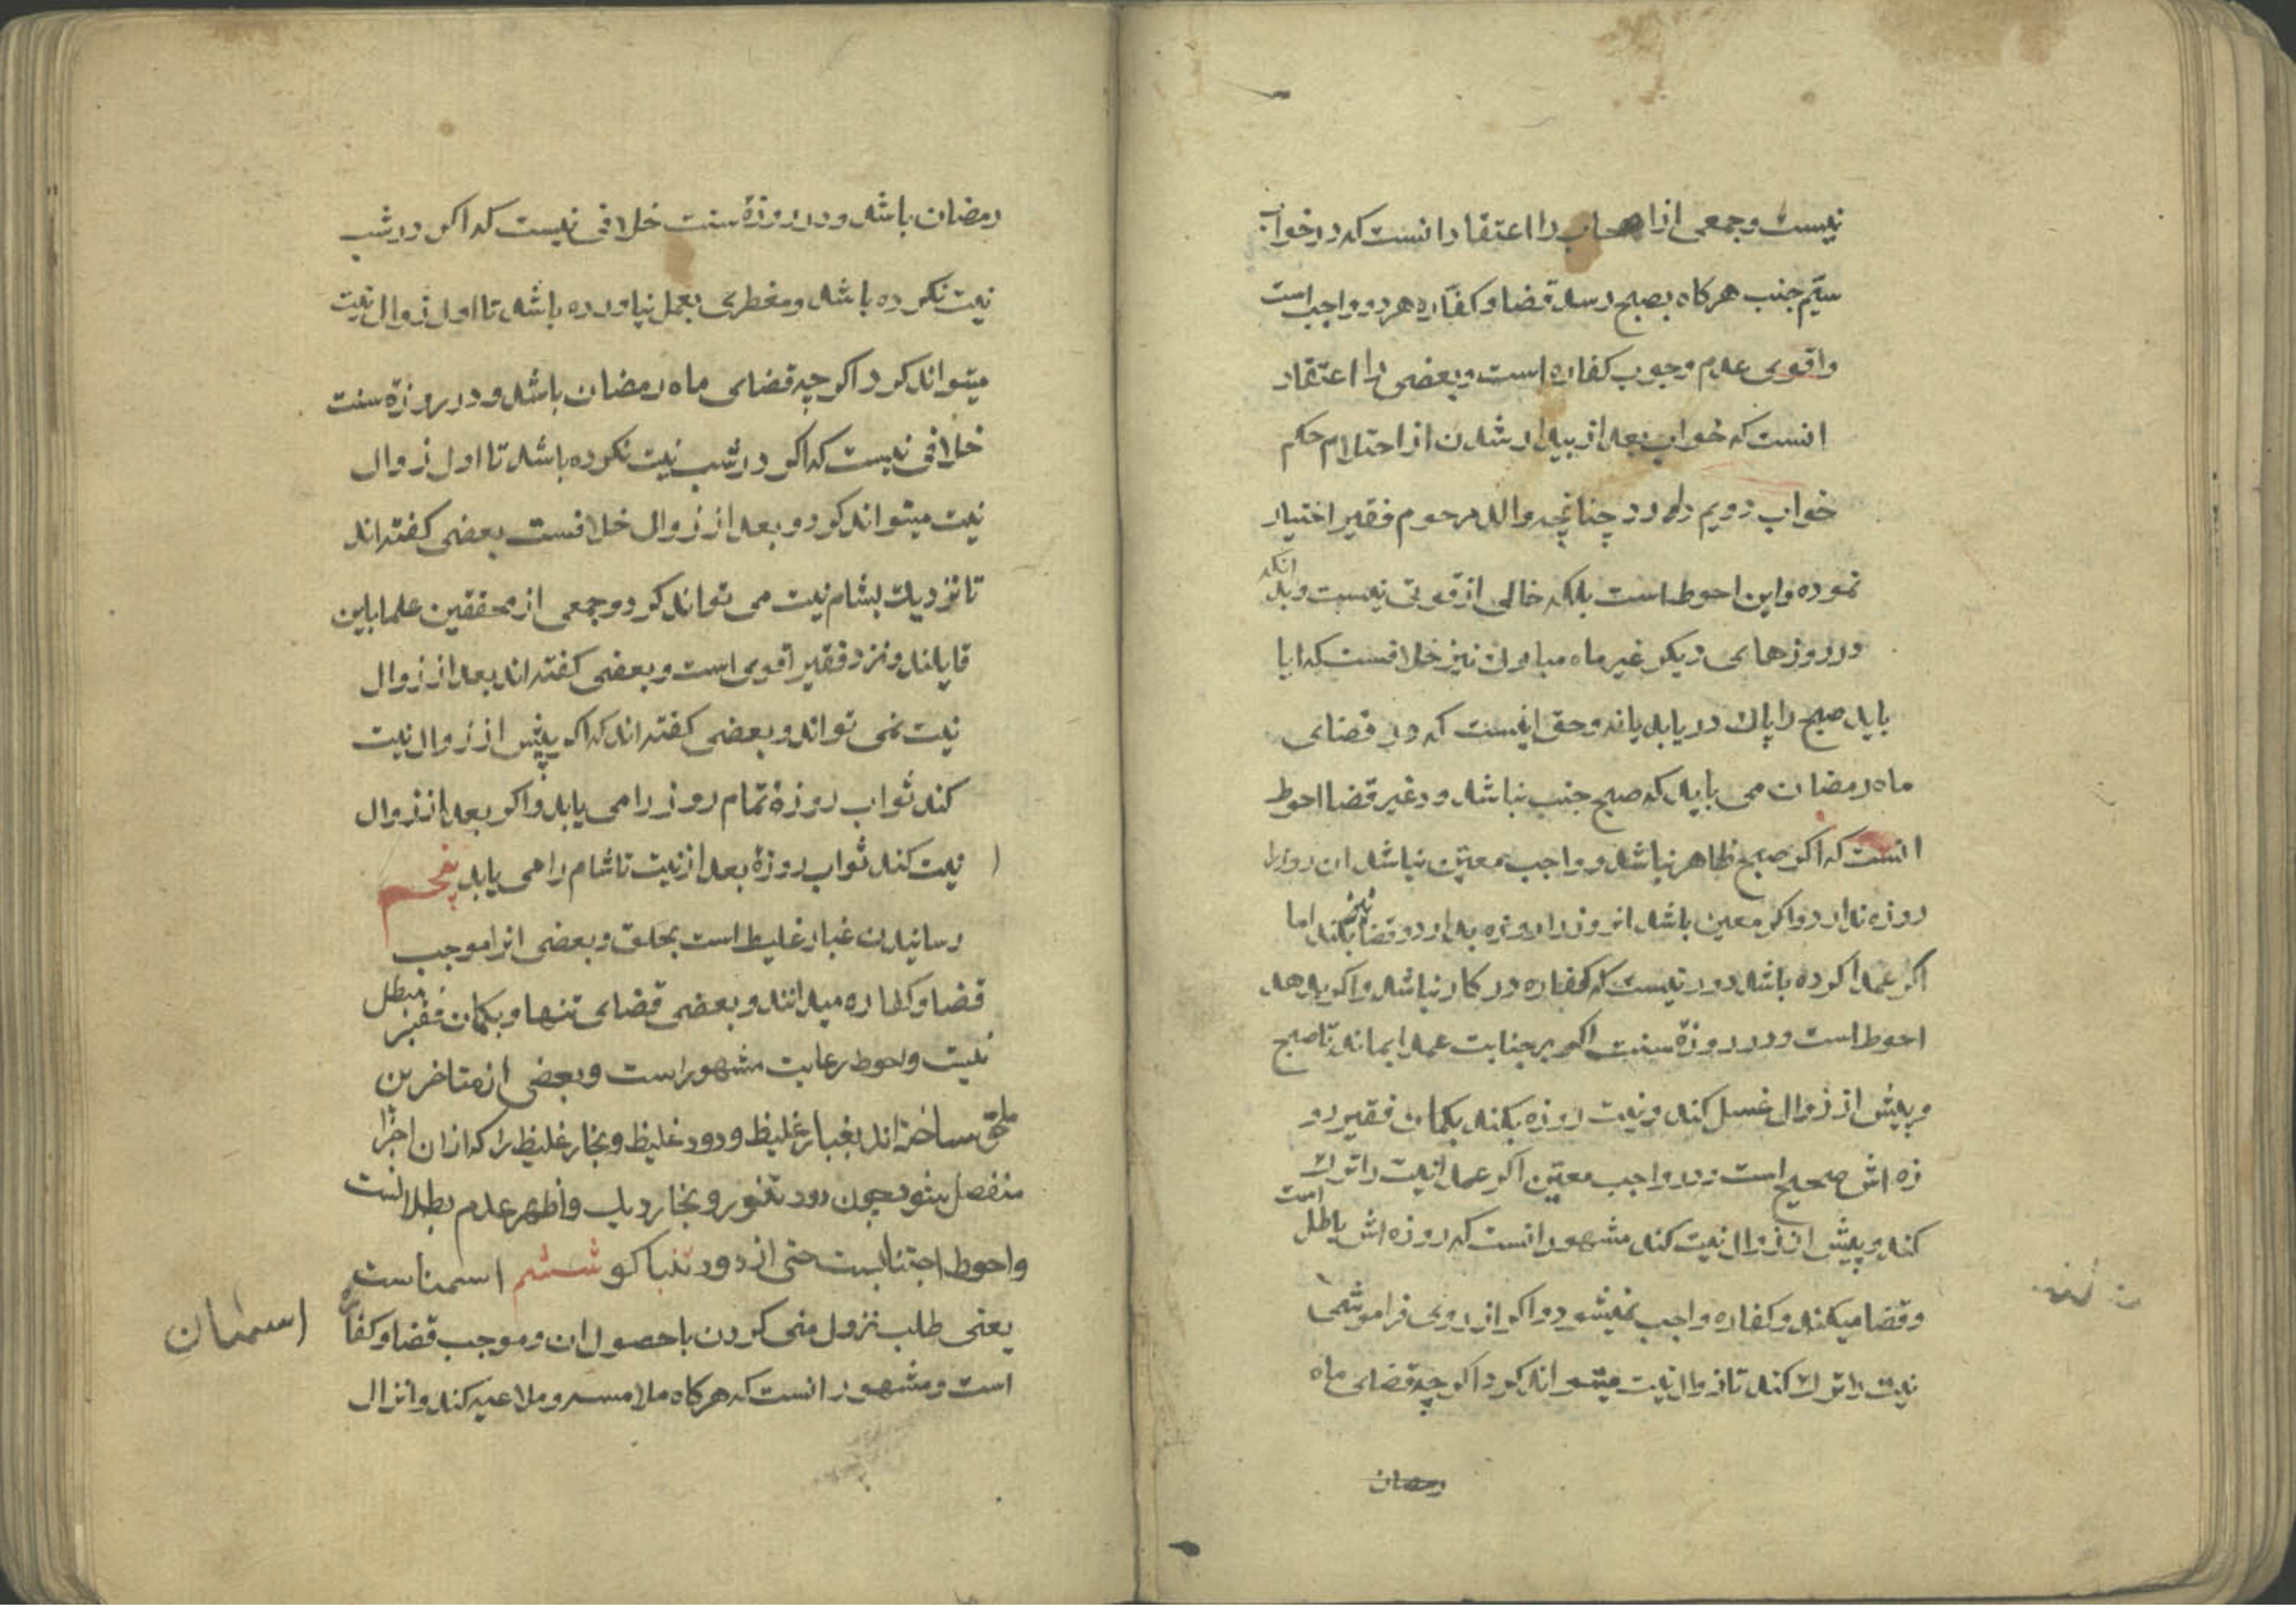 نیست و جمعی از اصحاب را اعتقاد انست که در خواب
سیّم جنب هرکاه بصبح رسد قضا و کفّاره هر دو واجب است
و اقوی عدم وجوب کفاره است و بعضی را اعتقاد
انست که خواب بعد از بیدار شدن از احتلام حکم
خواب دویم دارد چنانچه والد مرحوم فقیر اختیار
نموده و این احوط است بلکه خالی از قوتی نیست و بدانکه
در روزهای دیکر غیر ماه مبارک نیز خلافست که ایا
باید صبح را پاک دریابد یا نه و حق اینست که در قضای
ماه رمضان می باید که صبح جنب نباشد و در غیر قضا احوط
انست که اکر صبح ظاهر نباشد و واجب معیّن نباشد ان روز را
روزه ندارد و اکر معین باشد انروز را روزه بدارد و قضا نیز بکند اما
اکر عمدا کرده باشد دور نیست که کفاره در کار نباشد و اکر بدهد
احوط است و در روزهٔ سنت اکر بر جنابت عمدا بماند تا صبح
و پیش از زوال غسل کند و نیت روزه بکند بکمان فقیر رو
زه اش صحیح است و در واجب معیّن اکر عمدا نیت را ترک
کند و پیش از زوال نیت کند مشهور انست که روزه اش باطل است
و قضا میکند و کفاره واجب نمیشود و اکر از روی فراموشی
نیت را ترک کند تا زوال نیت میتواند کرد اکر چه قضای ماه
رمضان
رمضان باشد و در روزهٔ سنت خلافی نیست که اکر در شب
نیت نکرده باشد و مفطری بعمل نیاورده باشد تا اول زوال نیت
میتواند کرد اکر چه قضای ماه رمضان باشد و در روزهٔ سنت
خلافی نیست که اکر در شب نیت نکرده باشد تا اول زوال
نیت میتواند کرد و بعد از زوال خلافست بعضی کفته اند
تا نزدیک بشام نیت می تواند کرد و جمعی از محققین علما باین
قایلند و نزد فقیر اقوی است و بعضی کفته اند بعد از زوال
نیت نمی تواند و بعضی کفته اند که اکر پیش از زوال نیت
کند ثواب روزهٔ تمام روز را می یابد و اکر بعد از زوال
نیت کند ثواب روزهٔ بعد از نیت تا شام را می یابد پنجم
رسانیدن غبار غلیظ است بحلق و بعضی انرا موجب
قضا و کفاره میدانند و بعضی قضای تنها و بکمان فقیر مبطل
نیست و احوط رعایت مشهور است و بعضی از متاخرین
ملحق ساخته اند بغبار غلیظ و دود غلیظ و بخار غلیظ را که از ان اجزا
منفصل بشود چون دود تنور و بخار دیک و اظهر عدم بطلانست
و احوط اجتنابست حتی از دود تنباکو ششم استمناست
یعنی طلب نزول منی کردن با حصول ان و موجب قضا و کفاره
است و مشهور انست که هرکاه ملامسه و ملاعبه کند و انزال